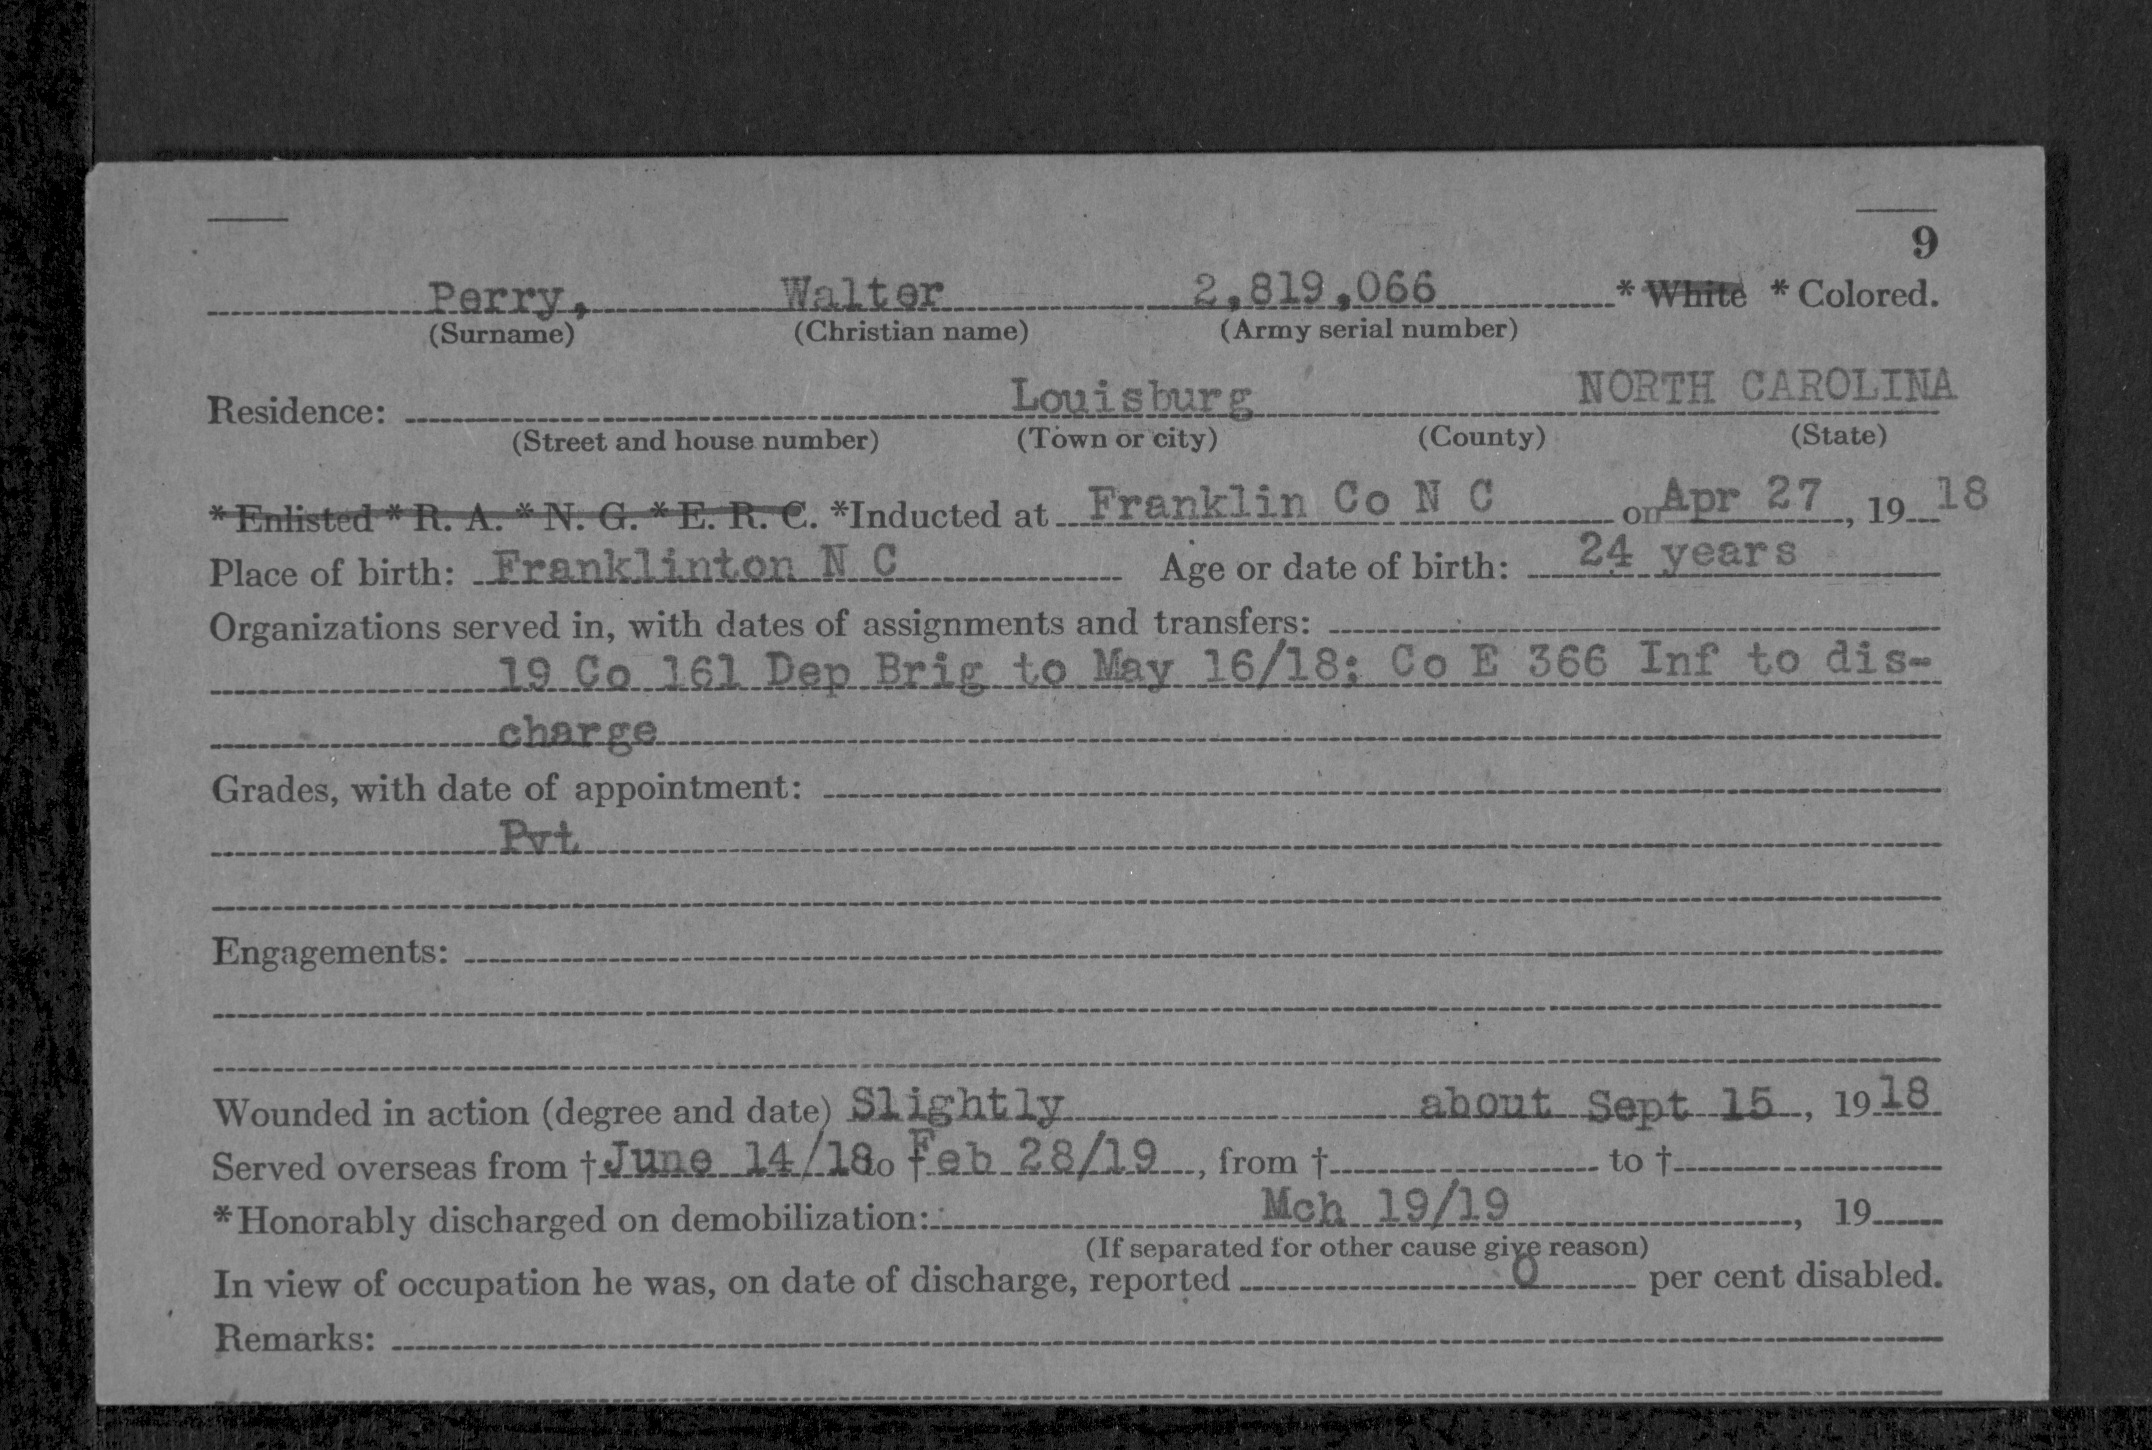 9
Perry, Walter 2,819,066 * White * Colored.
(Surname) (Christian name) (Army serial number)
Residence: Louisburg NORTH CAROLINA
(Street and house number) (Town or city) (County) (State)
* Enlisted * R. A. * N. G. * E. R. C. *Inducted at Franklin Co N C on Apr 27, 19 18
Place of birth: Franklinton N C Age or date of birth: 24 years
Organizations served in, with dates of assignments and transfers:
19 Co 161 Dep Brig to May 16/18; Co E 366 Inf to dis-
charge
Grades, with date of appointment:
Pvt
Engagements:
Wounded in action (degree and date) Slightly about Sept 15, 19 18
Served overseas from † June 14/18 to † Feb 28/19, from † to †
*Honorably discharged on demobilization: Mch 19/19, 19
(If separated for other cause give reason)
In view of occupation he was, on date of discharge, reported 0 per cent disabled.
Remarks: